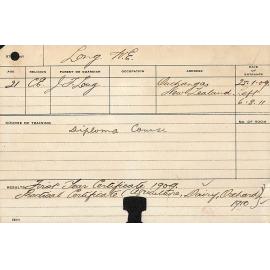 Long W.E.
AGE RELIGION PARENT OR GUARDIAN OCCUPATION ADDRESS DATE OF ENTRANCE
21 C.E. J F Long Onehunga 25.1.09
New Zealand Left
6.2.11
COURSE OF TRAINING No. OF ROOM
Diploma Course
RESULTS First Year Certificate 1909.
Practical Certificate (Agriculture, Dairy, Orchard)
1910